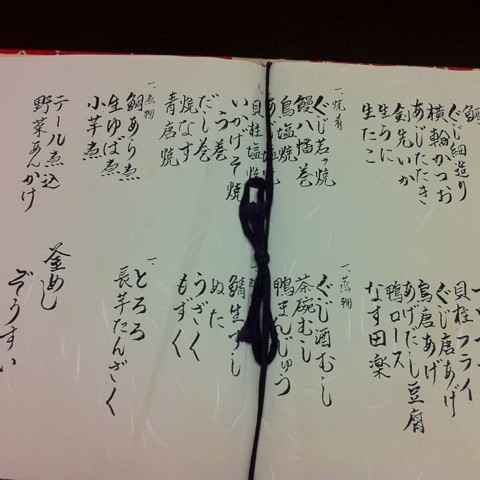 ぐじ細造り
横輪かつお
あじたたき
剣先いか
生うに
生たこ
一、焼肴
ぐじ若さ焼
鰻八幡巻
鳥塩焼
貝柱塩焼
いかげそ焼
だし巻
う巻
焼なす
青唐焼
一、煮物
鯛あら煮
生ゆば煮
小芋煮
テール煮込
野菜あんかけ
貝柱フライ
ぐじ唐あげ
鳥唐あげ
あげだし豆腐
鴨ロース
なす田楽
一、蒸物
ぐじ酒むし
茶碗むし
鴨まんじゅう
鯖生ずし
ぬた
うざく
もずく
一、とろろ
長芋たんざく
釜めし
ぞうすい